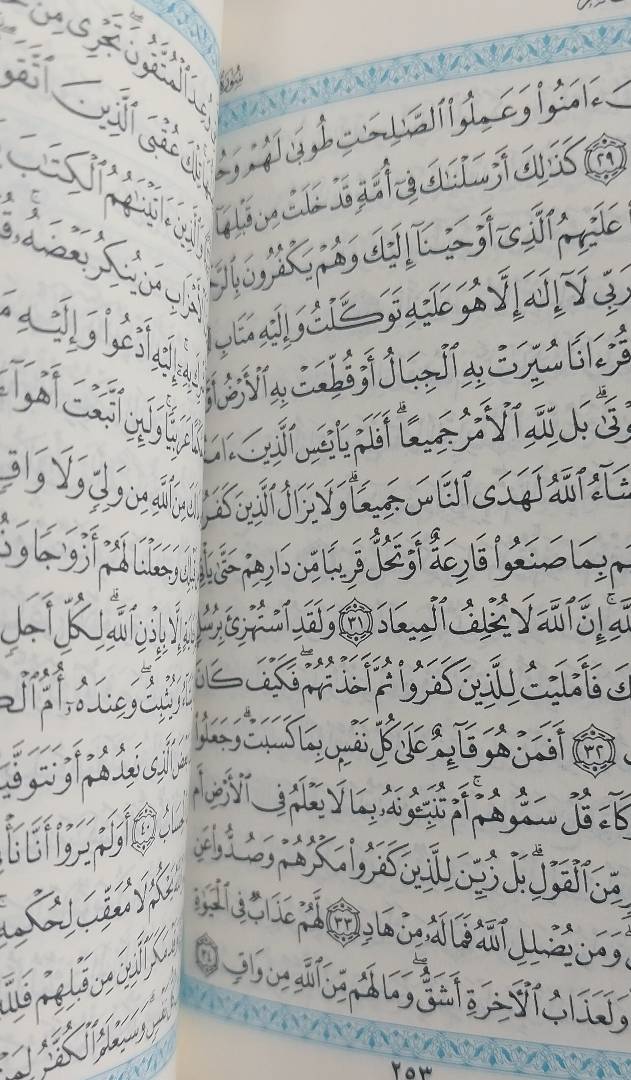 ءَامَنُوا۟ وَعَمِلُوا۟ ٱلصَّـٰلِحَـٰتِ طُوبَىٰ لَهُمْ
٢٩ كَذَٰلِكَ أَرْسَلْنَـٰكَ فِىٓ أُمَّةٍ قَدْ خَلَتْ مِن قَبْلِهَآ
عَلَيْهِمُ ٱلَّذِىٓ أَوْحَيْنَآ إِلَيْكَ وَهُمْ يَكْفُرُونَ
رَبِّى لَآ إِلَـٰهَ إِلَّا هُوَ عَلَيْهِ تَوَكَّلْتُ وَإِلَيْهِ مَتَابِ
قُرْءَانًا سُيِّرَتْ بِهِ ٱلْجِبَالُ أَوْ قُطِّعَتْ بِهِ ٱلْأَرْضُ
بَل لِّلَّهِ ٱلْأَمْرُ جَمِيعًا ۗ أَفَلَمْ يَا۟يْـَٔسِ ٱلَّذِينَ
ٱللَّهُ لَهَدَى ٱلنَّاسَ جَمِيعًا ۗ وَلَا يَزَالُ ٱلَّذِينَ
بِمَا صَنَعُوا۟ قَارِعَةٌ أَوْ تَحُلُّ قَرِيبًا مِّن دَارِهِمْ حَتَّىٰ
إِنَّ ٱللَّهَ لَا يُخْلِفُ ٱلْمِيعَادَ ٣١ وَلَقَدِ ٱسْتُهْزِئَ
فَأَمْلَيْتُ لِلَّذِينَ كَفَرُوا۟ ثُمَّ أَخَذْتُهُمْ ۖ فَكَيْفَ كَانَ
٣٢ أَفَمَنْ هُوَ قَآئِمٌ عَلَىٰ كُلِّ نَفْسٍۭ بِمَا كَسَبَتْ ۗ وَجَعَلُوا۟
قُلْ سَمُّوهُمْ ۚ أَمْ تُنَبِّـُٔونَهُۥ بِمَا لَا يَعْلَمُ فِى ٱلْأَرْضِ أَم
مِّنَ ٱلْقَوْلِ ۗ بَلْ زُيِّنَ لِلَّذِينَ كَفَرُوا۟ مَكْرُهُمْ وَصُدُّوا۟ عَنِ
وَمَن يُضْلِلِ ٱللَّهُ فَمَا لَهُۥ مِنْ هَادٍ ٣٣ لَّهُمْ عَذَابٌ فِى ٱلْحَيَوٰةِ
وَلَعَذَابُ ٱلْـَٔاخِرَةِ أَشَقُّ ۖ وَمَا لَهُم مِّنَ ٱللَّهِ مِن وَاقٍ ٣٤
٢٥٣
ٱلْمُتَّقُونَ ۖ تَجْرِى مِن
عُقْبَى ٱلَّذِينَ ٱتَّقَوا۟
ءَاتَيْنَـٰهُمُ ٱلْكِتَـٰبَ
مَن يُنكِرُ بَعْضَهُۥ ۚ
إِلَيْهِ أَدْعُوا۟ وَإِلَيْهِ
عَرَبِيًّا ۚ وَلَئِنِ ٱتَّبَعْتَ
مِنَ ٱللَّهِ مِن وَلِىٍّ وَلَا وَاقٍ
وَجَعَلْنَا لَهُمْ أَزْوَٰجًا
إِلَّا بِإِذْنِ ٱللَّهِ ۗ لِكُلِّ أَجَلٍ
وَيُثْبِتُ ۖ وَعِندَهُۥٓ أُمُّ
ٱلَّذِى نَعِدُهُمْ أَوْ
٤٠ أَوَلَمْ يَرَوْا۟ أَنَّا
لَا مُعَقِّبَ لِحُكْمِهِۦ ۚ
مَكَرَ ٱلَّذِينَ مِن قَبْلِهِمْ
وَسَيَعْلَمُ ٱلْكُفَّـٰرُ